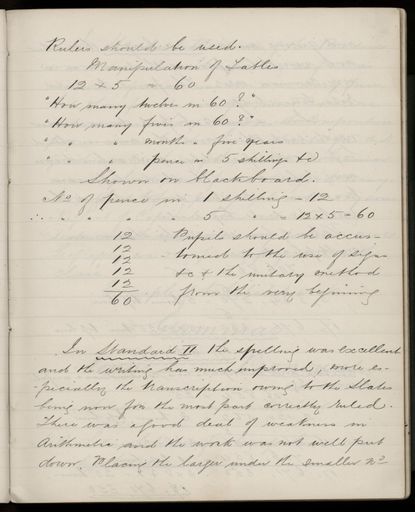 Rulers should be used.
Manipulation of Tables
12 x 5 = 60
"How many twelves in 60?"
"How many fives in 60?"
" " " months in five years
" " " pence in 5 shillings &c
Shown on blackboard.
No of pence in 1 shilling = 12
∴ " " " " 5 " = 12 x 5 = 60
12 Pupils should be accus-
12 -tomed to the use of signs
12
12 &c & the unitary method
12 from the very beginning
60
In Standard II the spelling was excellent
and the writing has much improved, more es-
-pecially the transcription owing to the slates
being now for the most part correctly ruled.
There was a good deal of weakness in
Arithmetic and the work was not well put
down. Placing the larger under the smaller no